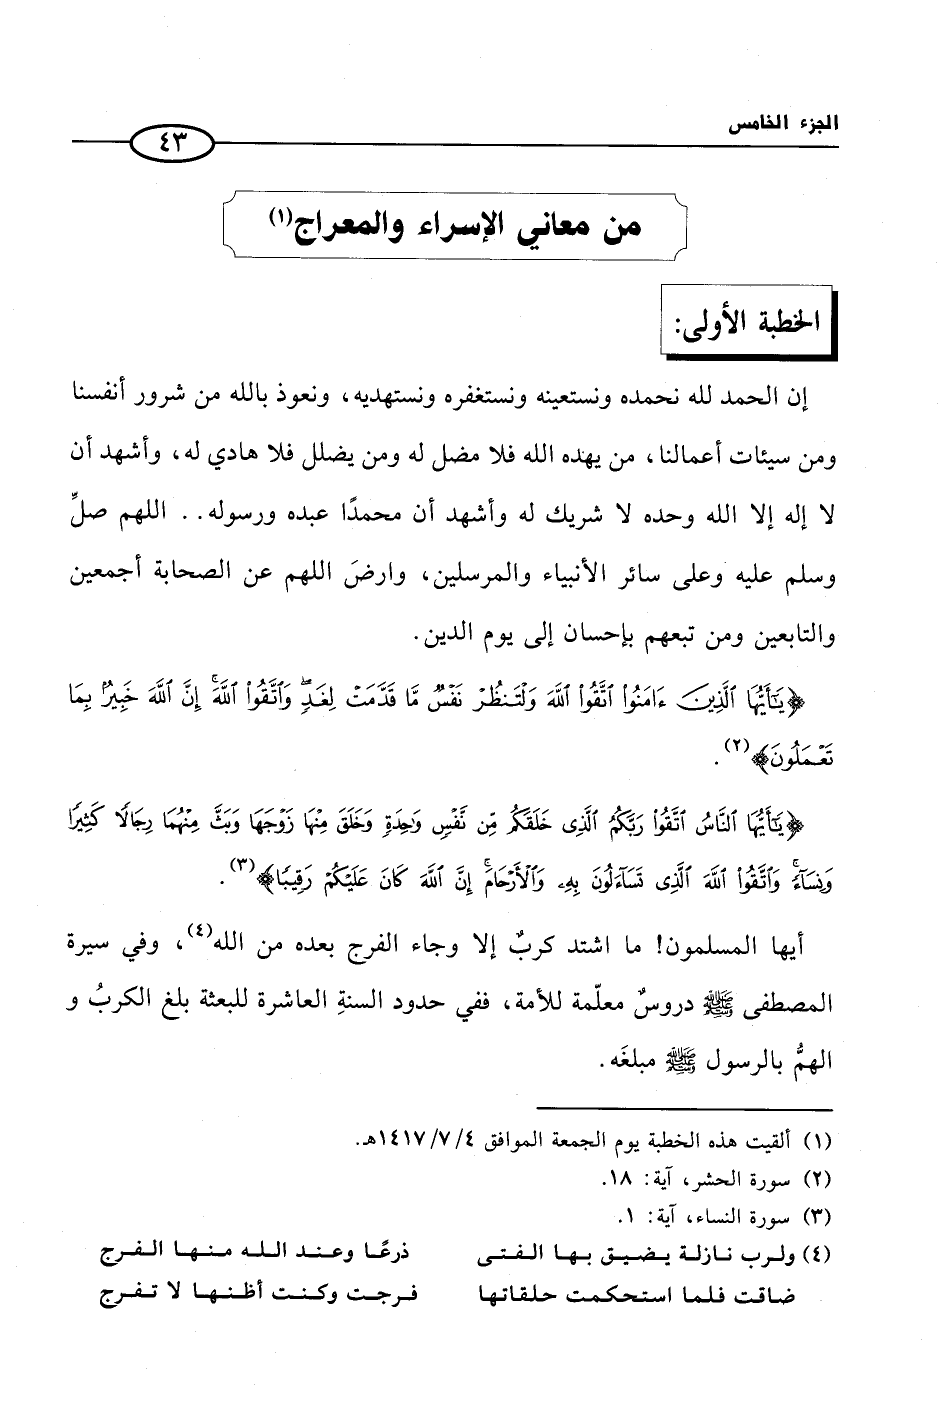 الجزء الخامس
٤٣
من معاني الإسراء والمعراج(١)
الخطبة الأولى:
إن الحمد لله نحمده ونستعينه ونستغفره ونستهديه، ونعوذ بالله من شرور أنفسنا
ومن سيئات أعمالنا، من يهده الله فلا مضل له ومن يضلل فلا هادي له، وأشهد أن
لا إله إلا الله وحده لا شريك له وأشهد أن محمدًا عبده ورسوله.. اللهم صلِّ
وسلم عليه وعلى سائر الأنبياء والمرسلين، وارضَ اللهم عن الصحابة أجمعين
والتابعين ومن تبعهم بإحسان إلى يوم الدين.
﴿يَٰٓأَيُّهَا ٱلَّذِينَ ءَامَنُوا۟ ٱتَّقُوا۟ ٱللَّهَ وَلْتَنظُرْ نَفْسٌ مَّا قَدَّمَتْ لِغَدٍ ۖ وَٱتَّقُوا۟ ٱللَّهَ ۚ إِنَّ ٱللَّهَ خَبِيرٌۢ بِمَا
تَعْمَلُونَ﴾(٢).
﴿يَٰٓأَيُّهَا ٱلنَّاسُ ٱتَّقُوا۟ رَبَّكُمُ ٱلَّذِى خَلَقَكُم مِّن نَّفْسٍ وَٰحِدَةٍ وَخَلَقَ مِنْهَا زَوْجَهَا وَبَثَّ مِنْهُمَا رِجَالًا كَثِيرًا
وَنِسَآءً ۚ وَٱتَّقُوا۟ ٱللَّهَ ٱلَّذِى تَسَآءَلُونَ بِهِۦ وَٱلْأَرْحَامَ ۚ إِنَّ ٱللَّهَ كَانَ عَلَيْكُمْ رَقِيبًا﴾(٣).
أيها المسلمون! ما اشتد كربٌ إلا وجاء الفرج بعده من الله(٤)، وفي سيرة
المصطفى ﷺ دروسٌ معلّمة للأمة، ففي حدود السنةِ العاشرة للبعثة بلغ الكربُ و
الهمُّ بالرسول ﷺ مبلغَه.
(١) ألقيت هذه الخطبة يوم الجمعة الموافق ١٤١٧/٧/٤هـ.
(٢) سورة الحشر، آية: ١٨.
(٣) سورة النساء، آية: ١.
(٤) ولرب نازلة يضيق بها الفتى ذرعًا وعند الله منها الفرج
ضاقت فلما استحكمت حلقاتها فرجت وكنت أظنها لا تفرج